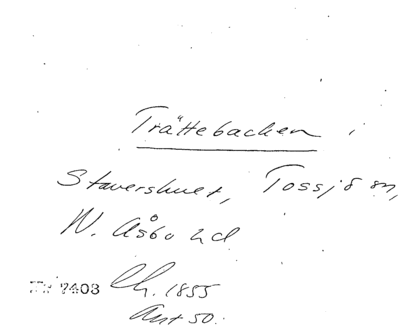 Trättebacken i
Stavershult, Tossjö sn,
N. Åsbo hd
7403 Ch. 1855
Ant 50.